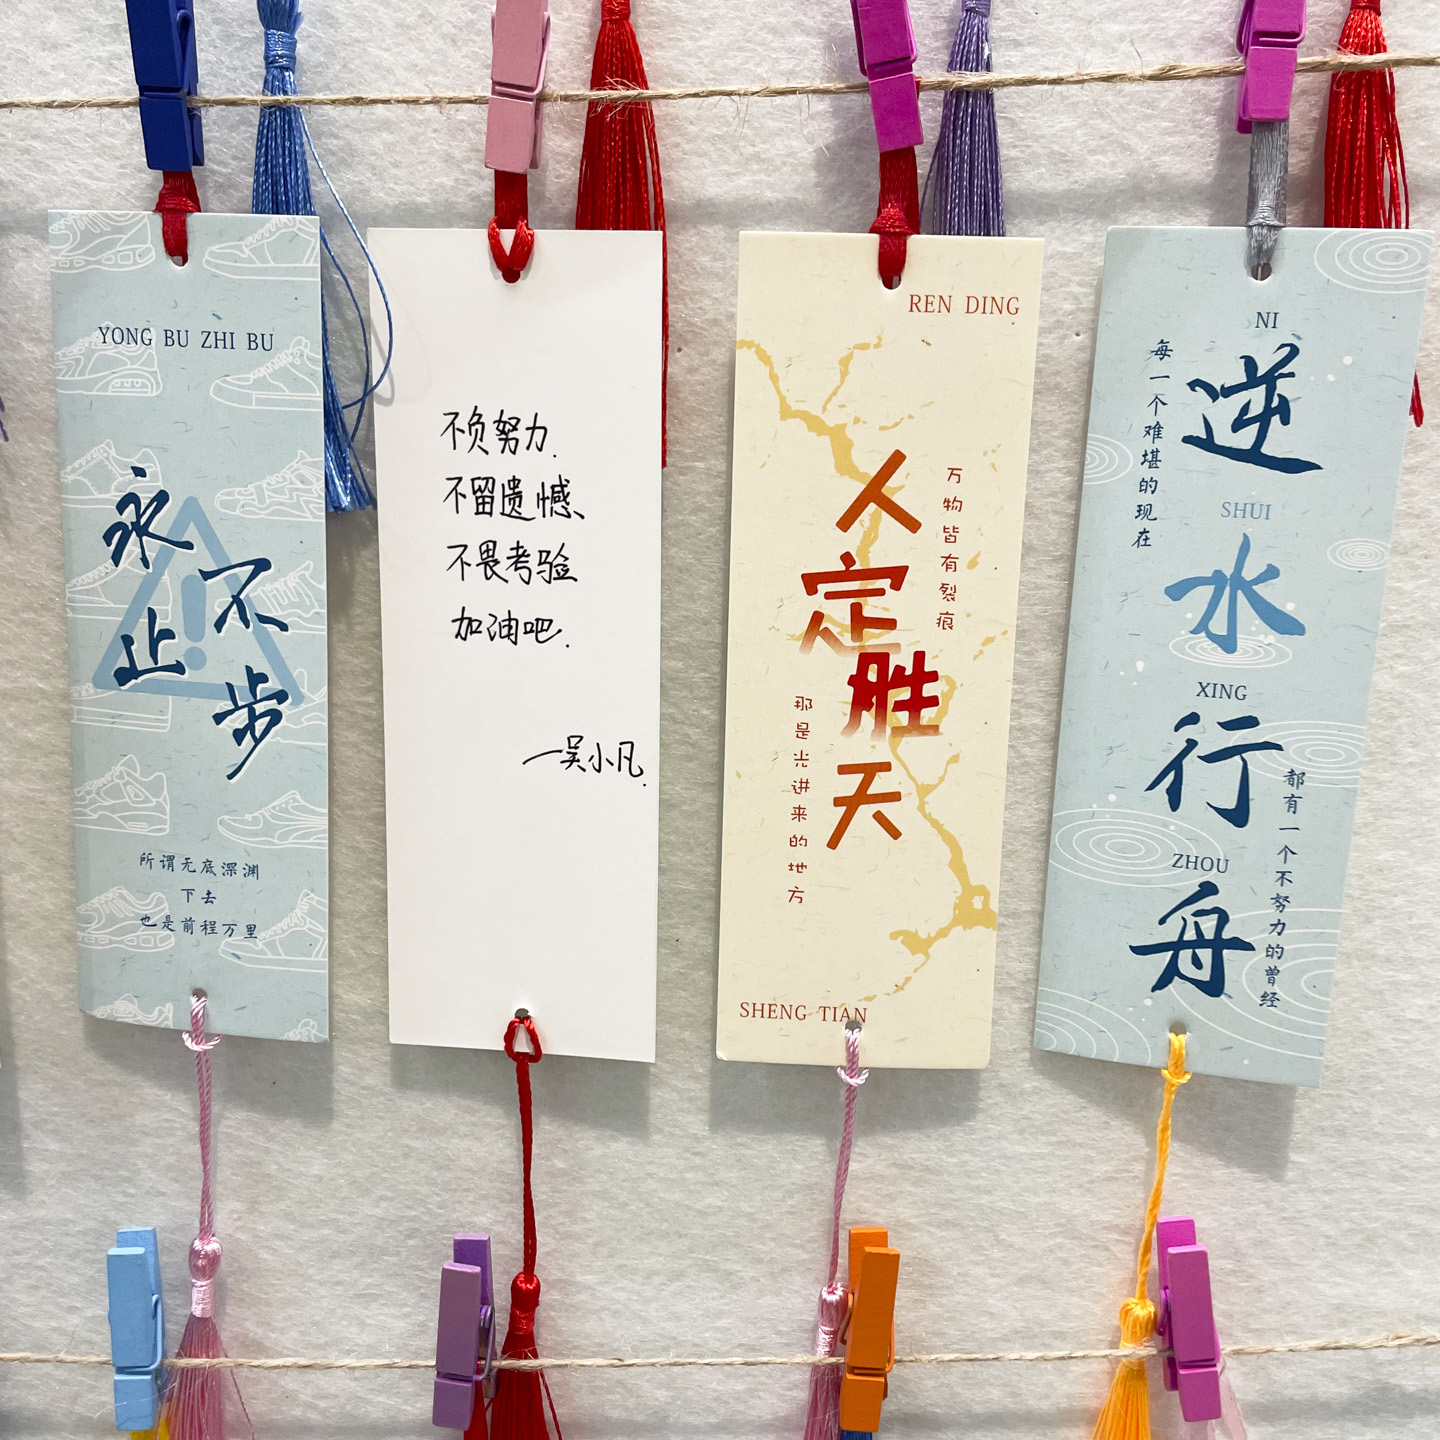 YONG BU ZHI BU
永不止步
所谓无底深渊
下去
也是前程万里
不负努力.
不留遗憾、
不畏考验
加油吧.
一吴小凡.
REN DING
人定胜天
万物皆有裂痕
那是光进来的地方
SHENG TIAN
NI
逆
每一个难堪的现在
SHUI
水
XING
行
ZHOU
舟
都有一个不努力的曾经